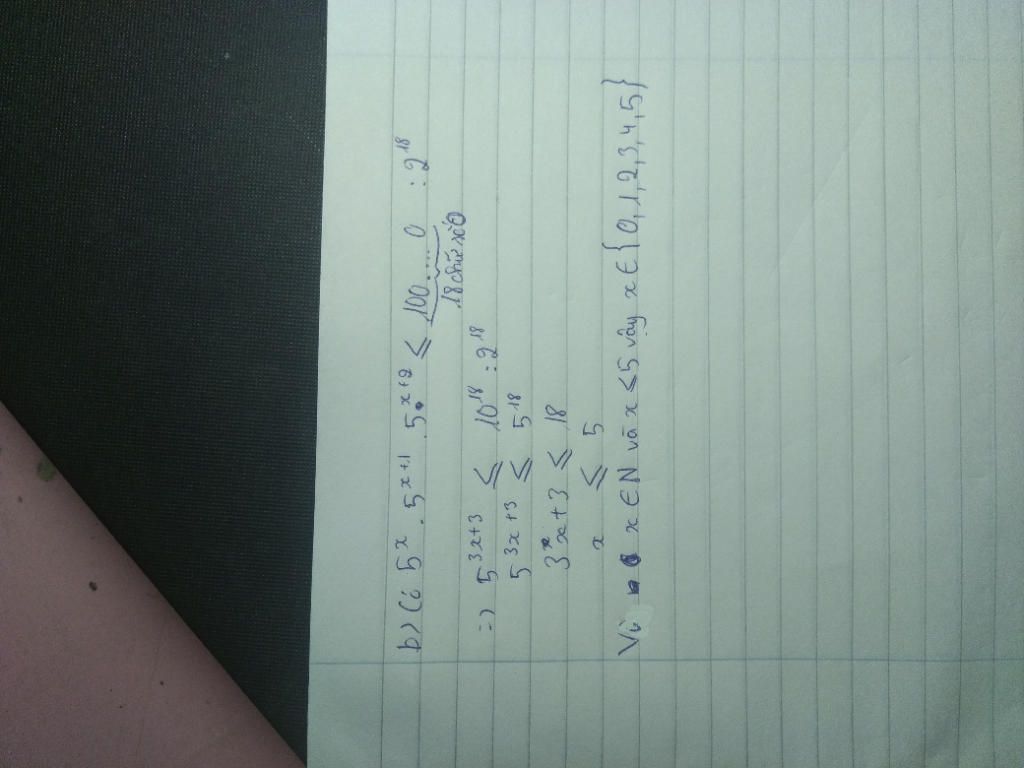 b) Có 5^x . 5^{x+1} . 5^{x+2} ≤ 100....0 : 2^{18}
18 chữ số 0
=) 5^{3x+3} ≤ 10^{18} : 2^{18}
5^{3x+3} ≤ 5^{18}
3x+3 ≤ 18
x ≤ 5
Vì x ∈ N và x ≤ 5 vậy x ∈ {0,1,2,3,4,5}